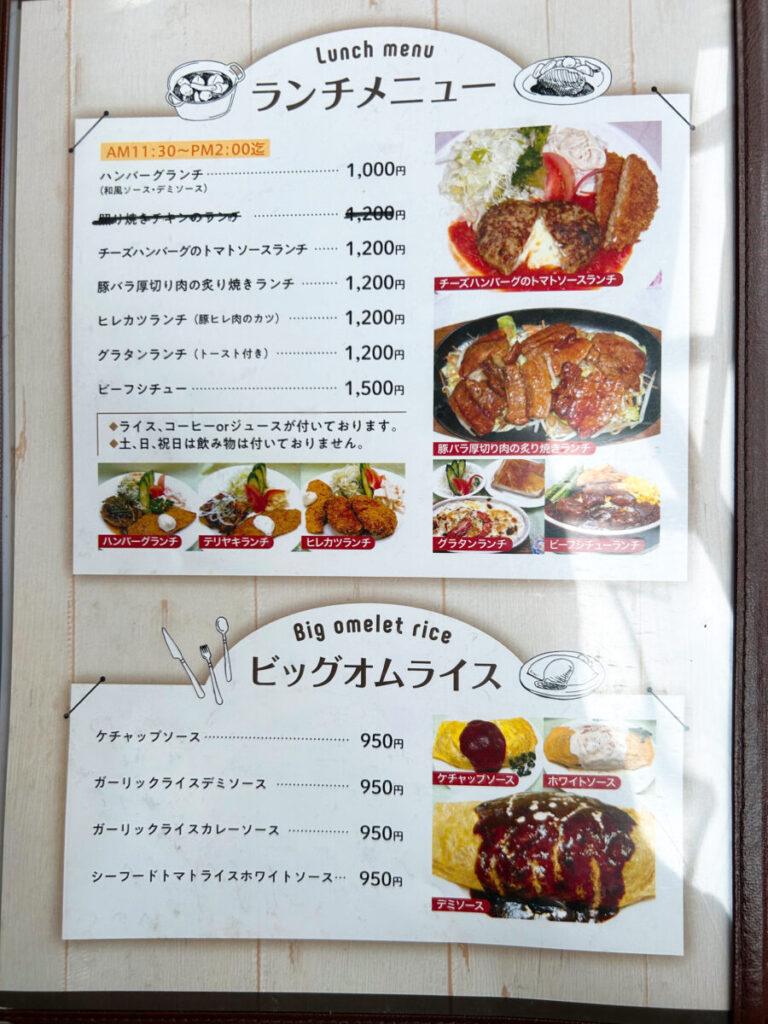 Lunch menu
ランチメニュー
AM11:30～PM2:00迄
ハンバーグランチ 1,000円
(和風ソース・デミソース)
照り焼きチキンのランチ 1,200円
チーズハンバーグのトマトソースランチ 1,200円
豚バラ厚切り肉の炙り焼きランチ 1,200円
ヒレカツランチ (豚ヒレ肉のカツ) 1,200円
グラタンランチ (トースト付き) 1,200円
ビーフシチュー 1,500円
◆ライス、コーヒーorジュースが付いております。
◆土、日、祝日は飲み物は付いておりません。
チーズハンバーグのトマトソースランチ
豚バラ厚切り肉の炙り焼きランチ
ハンバーグランチ
テリヤキランチ
ヒレカツランチ
グラタンランチ
ビーフシチューランチ
Big omelet rice
ビッグオムライス
ケチャップソース 950円
ガーリックライスデミソース 950円
ガーリックライスカレーソース 950円
シーフードトマトライスホワイトソース 950円
ケチャップソース
ホワイトソース
デミソース